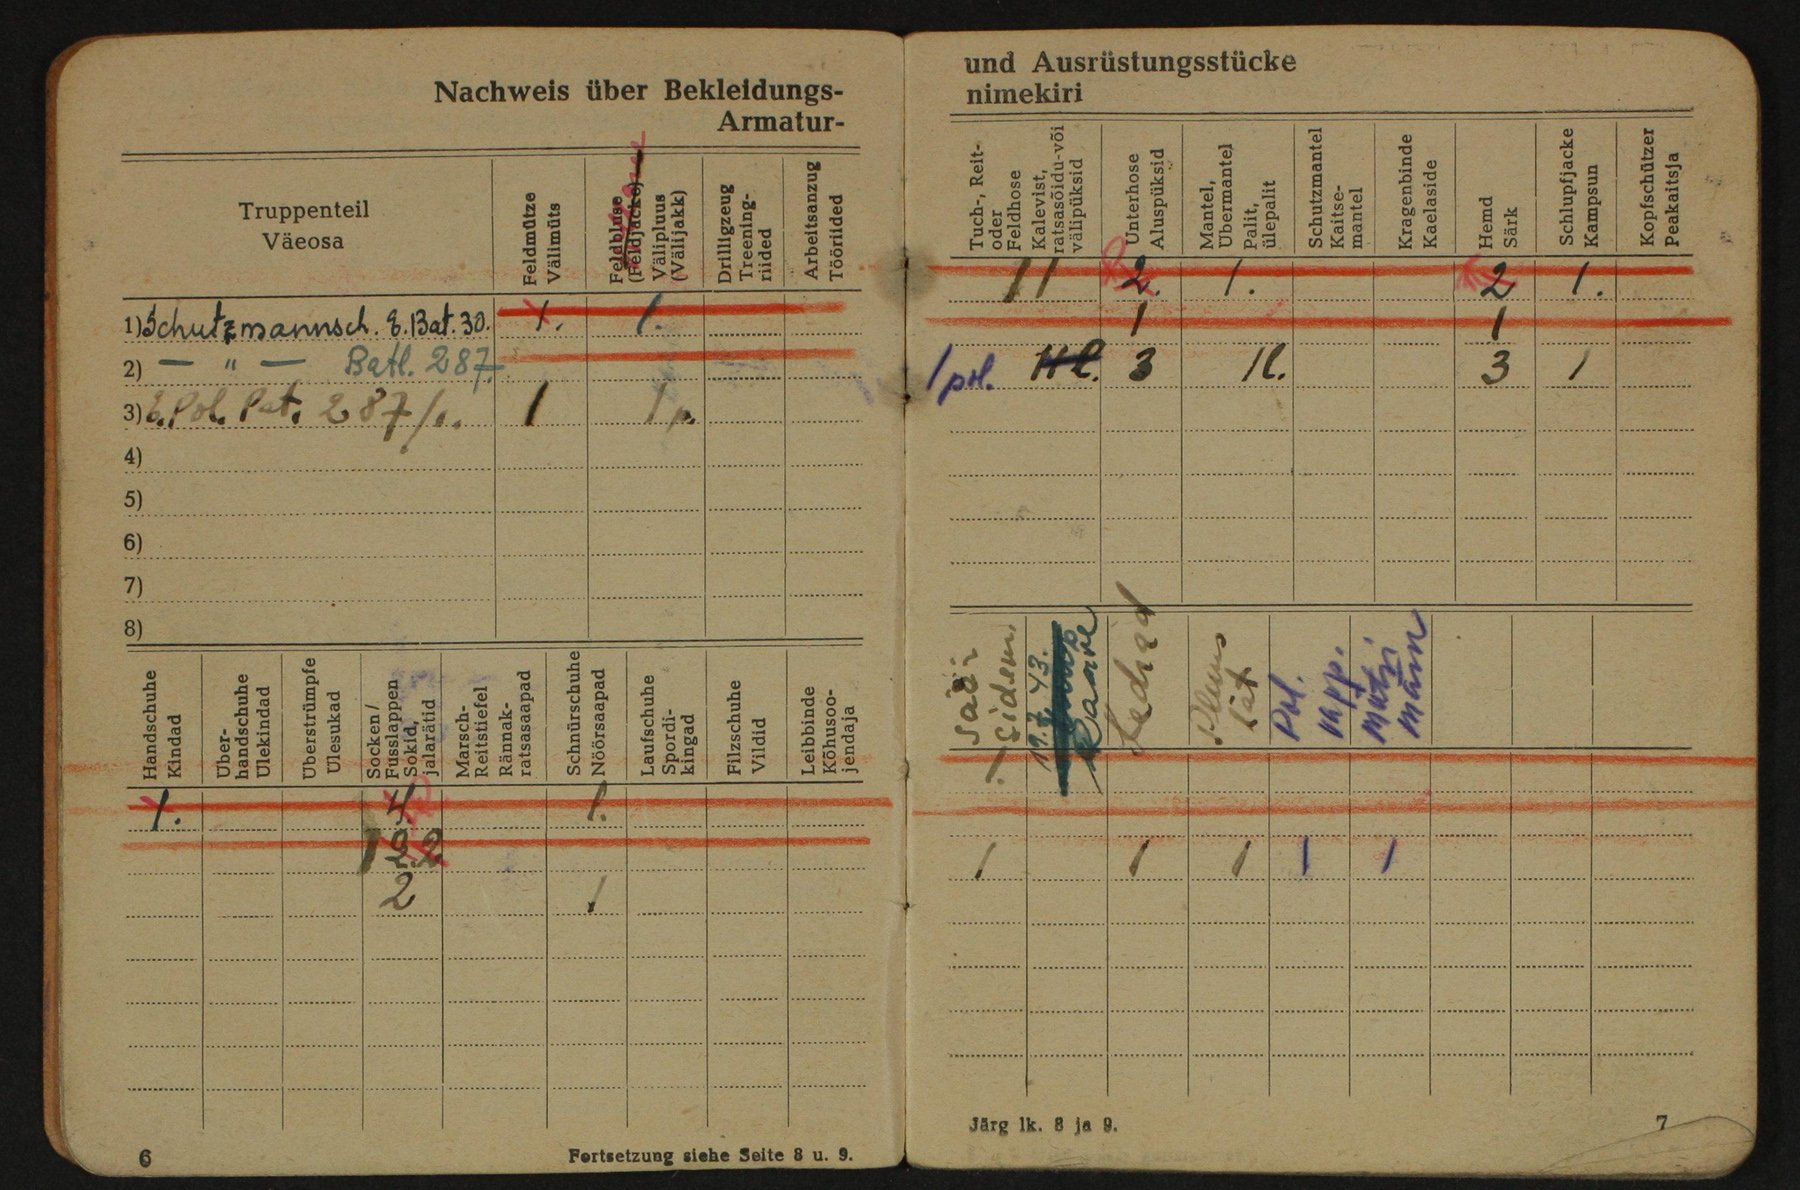 Nachweis über Bekleidungs-
Armatur-
Truppenteil
Väeosa
Feldmütze
Välimüts
Feldbluse
(Feldjacke)
Välipluus
(Välijakk)
Drilligzeug
Treening-
riided
Arbeitsanzug
Tööriided
1) Schutzmannsch. E. Bat. 30. 1. 1.
2) — " — Batl. 287.
3) E. Pol. Bat. 287/1. 1 1 p.
4)
5)
6)
7)
8)
Handschuhe
Kindad
Über-
handschuhe
Ülekindad
Uberstrümpfe
Ülesukad
Socken/
Fusslappen
Sokid,
jalarätid
Marsch-
Reitstiefel
Rännak-
ratsasaapad
Schnürschuhe
Nöörsaapad
Laufschuhe
Spordi-
kingad
Filzschuhe
Vildid
Leibbinde
Kõhusoo-
jendaja
1. 4. 1.
1 2. 2.
2 1
6
Fortsetzung siehe Seite 8 u. 9.
und Ausrüstungsstücke
nimekiri
Tuch-, Reit-
oder
Feldhose
Kalevist,
ratsasõidu-või
välipüksid
Unterhose
Aluspüksid
Mantel,
Übermantel
Palit,
ülepalit
Schutzmantel
Kaitse-
mantel
Kragenbinde
Kaelaside
Hemd
Särk
Schlupfjacke
Kampsun
Kopfschützer
Peakaitsja
11 2. 1. 2 1.
1 1
1 pol. 3 1l. 3 1
19.7.43.
Pol.
müts
1 1 1 1 1
Järg lk. 8 ja 9.
7